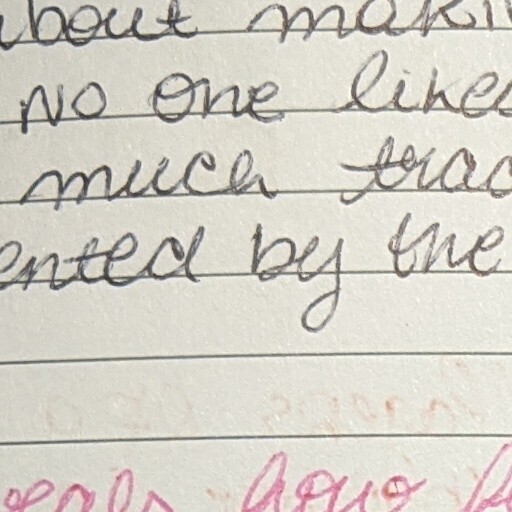 about maki
No one likes
much trac
ented by the